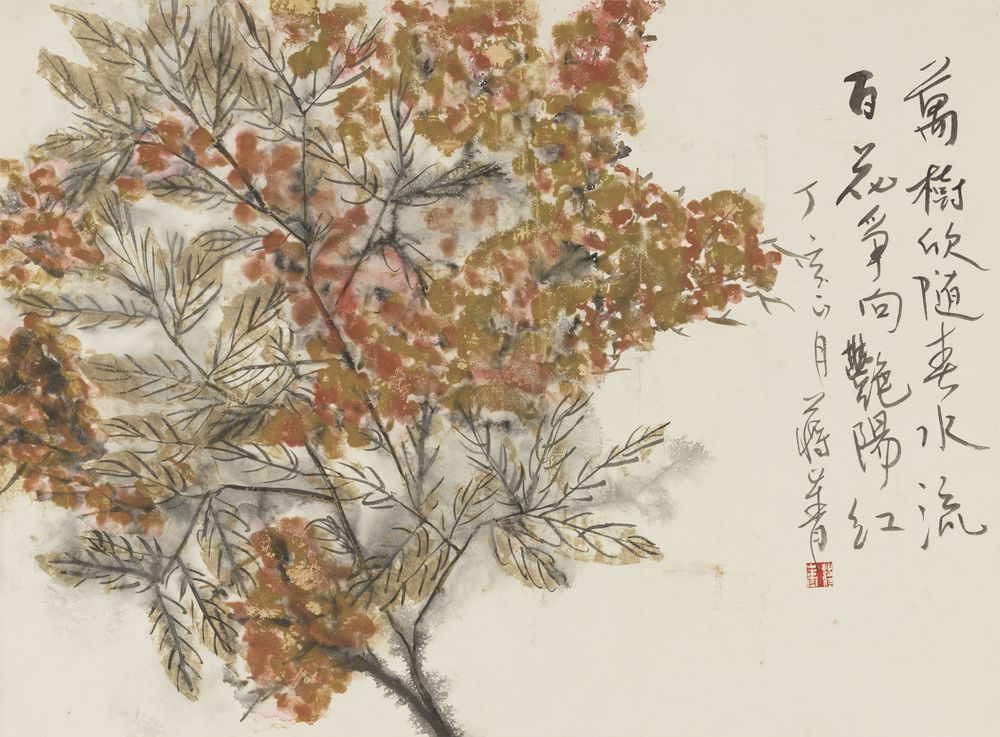 萬樹欣隨春水流
百花爭向艷陽紅
丁亥正月 蔣菁